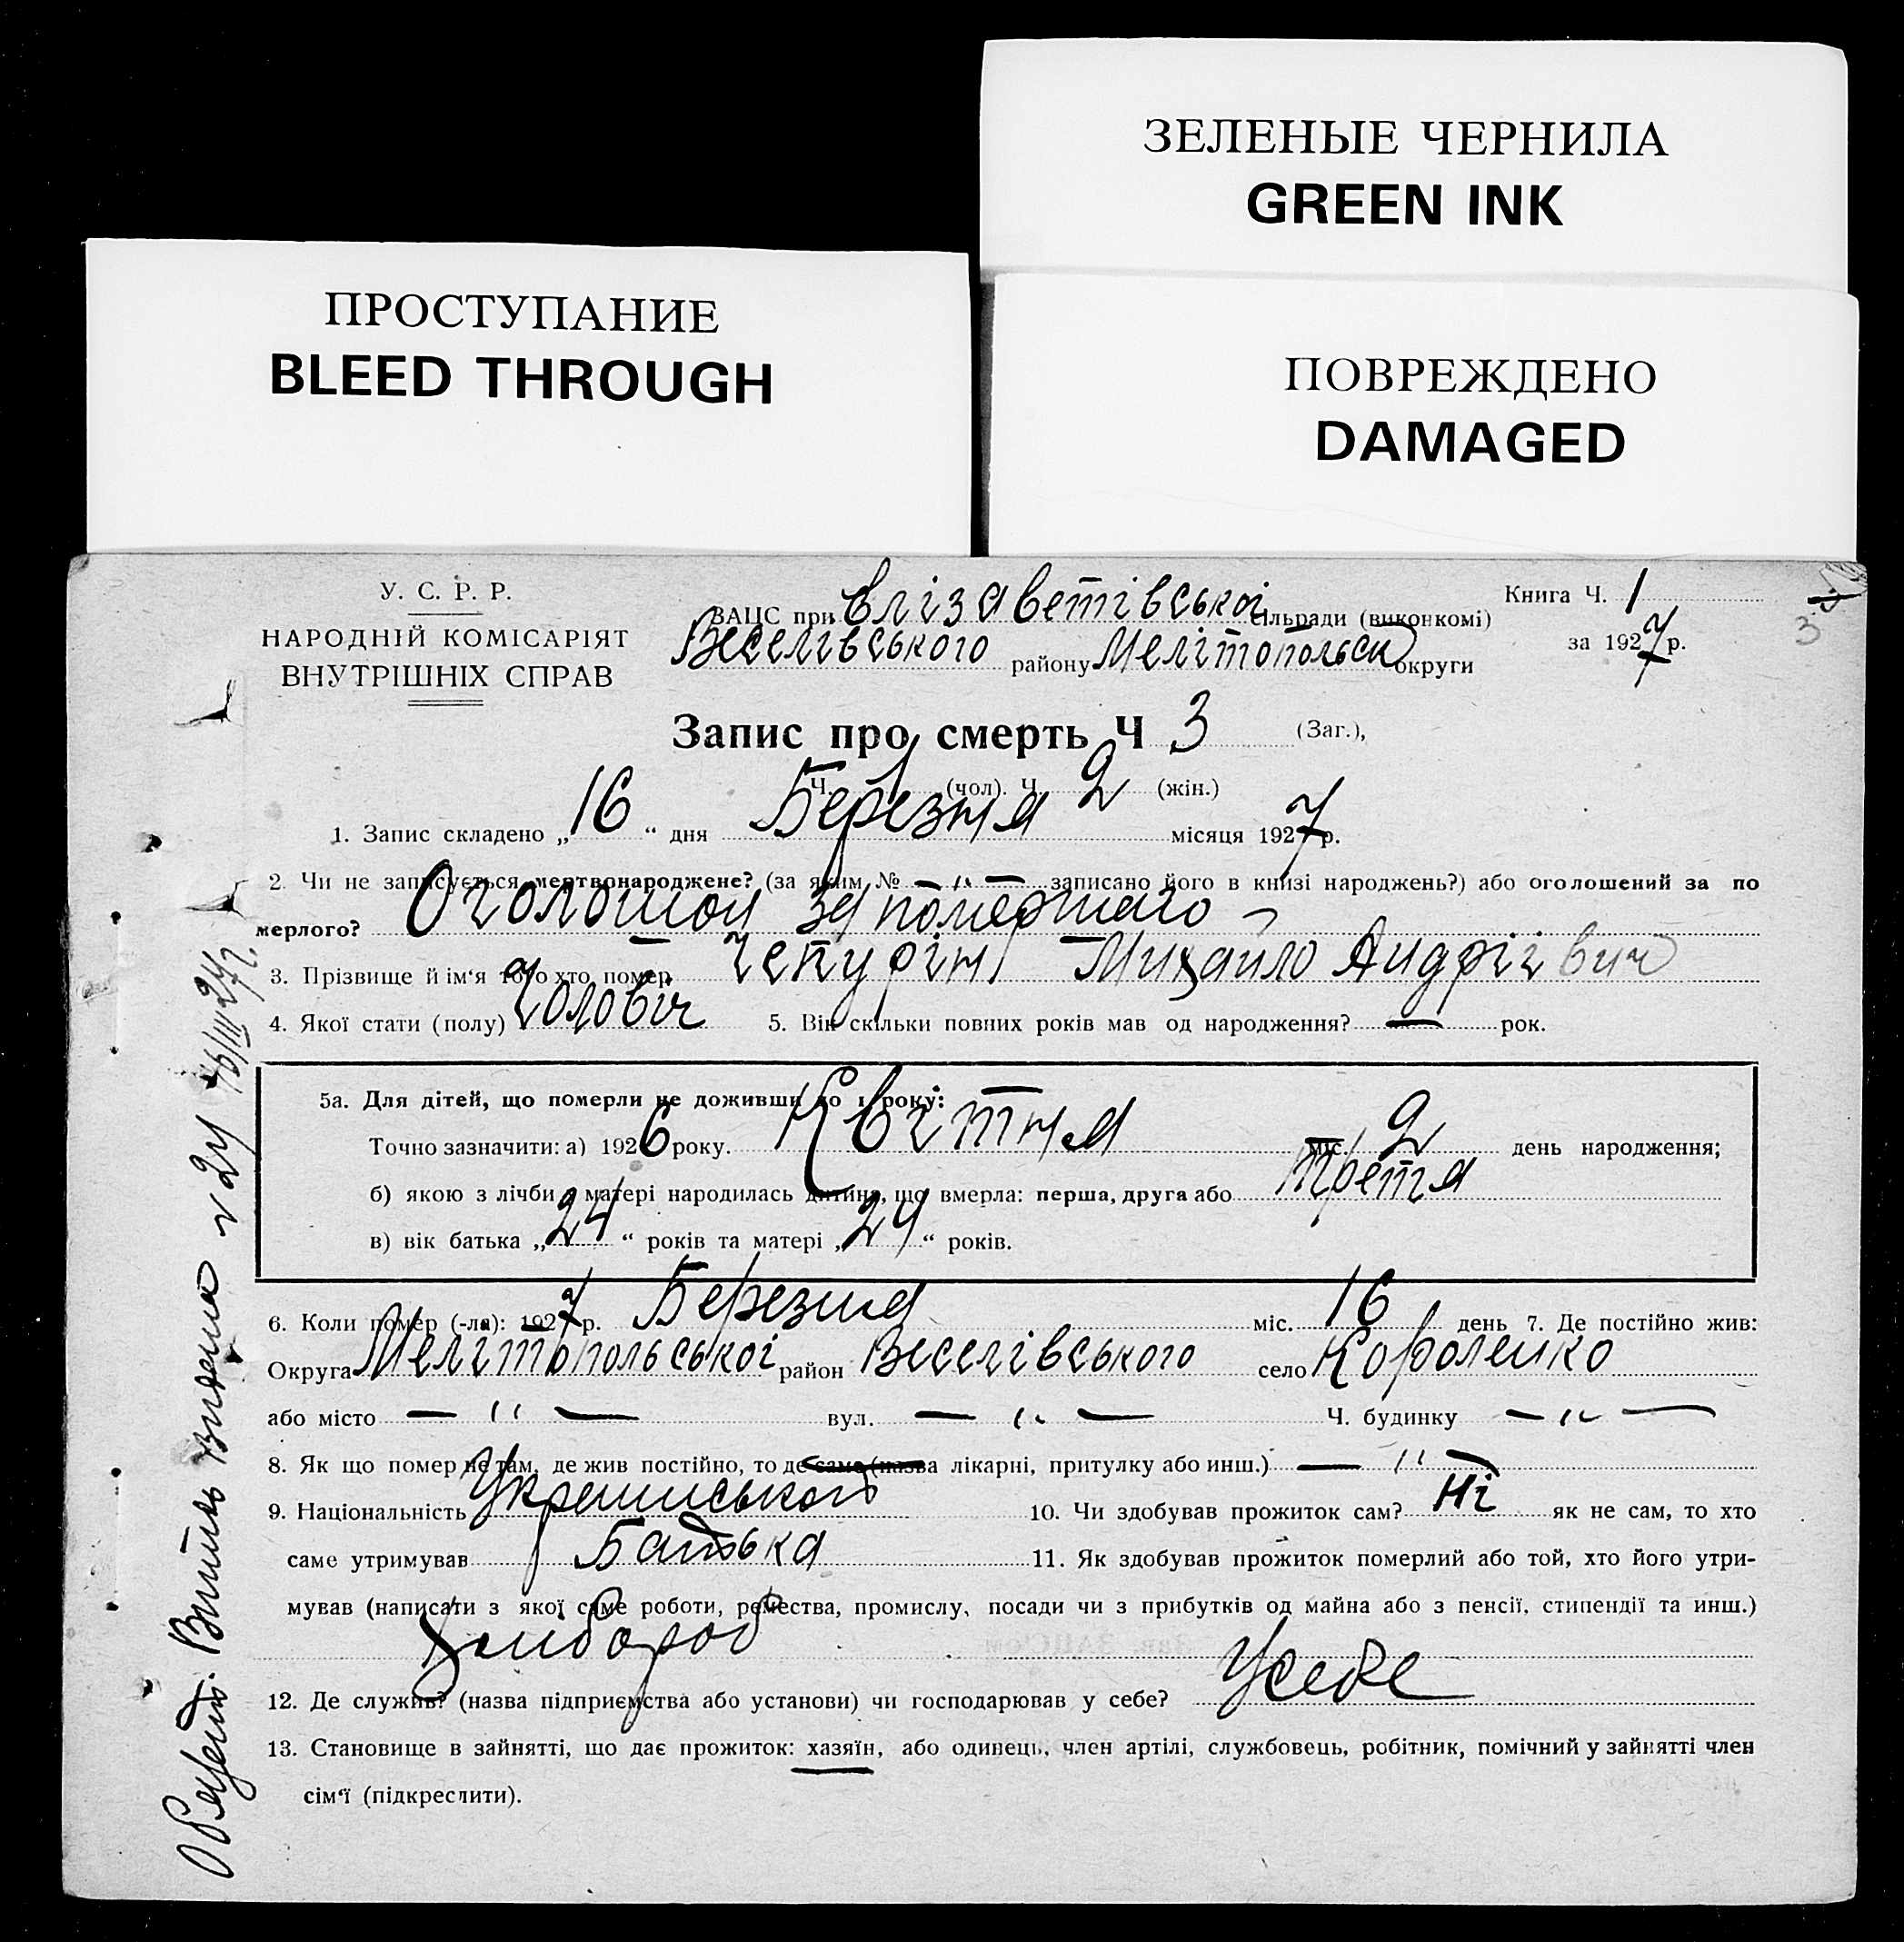 ЗЕЛЕНЫЕ ЧЕРНИЛА
GREEN INK
ПРОСТУПАНИЕ
BLEED THROUGH
ПОВРЕЖДЕНО
DAMAGED
У. С. Р. Р.
НАРОДНІЙ КОМІСАРІЯТ
ВНУТРІШНІХ СПРАВ
ЗАЦС при Єлізаветівської сільради (виконкомі)
Веселівського району Мелітопольськ округи
Книга Ч. 1
за 1927 р.
3
Запис про смерть Ч 3 (Заг.),
Ч. 1 (чол). Ч. 2 (жін.)
1. Запис складено „16“ дня Березня місяця 1927 р.
2. Чи не записується мертвонароджене? (за яким № — „ — записано його в книзі народжень?) або оголошений за по
мерлого? Оголошон за помершаго —
3. Прізвище й ім‘я того хто помер Чепурін Михайло Андріівич
4. Якої стати (полу) Чоловіч 5. Вік скільки повних років мав од народження? — рок.
5а. Для дітей, що померли не доживши до 1 року:
Точно зазначити: а) 1926 року. Квітня міс. 2 день народження;
б) якою з лічби у матері народилась дитина, що вмерла: перша, друга або третя
в) вік батька „24“ років та матері „24“ років.
6. Коли помер (-ла): 1927 р. Березня міс. 16 день 7. Де постійно жив:
Округа Мелітопольської район Веселівського село Короленко
або місто — „ — вул. — „ — Ч. будинку — „ —
8. Як що помер не там, де жив постійно, то де саме (назва лікарні, притулку або инш.) — „ —
9. Національність Украинського 10. Чи здобував прожиток сам? Ні як не сам, то хто
саме утримував Батька 11. Як здобував прожиток померлий або той, хто його утри-
мував (написати з якої саме роботи, ремества, промислу, посади чи з прибутків од майна або з пенсії, стипендії та инш.)
Хлибороб
12. Де служив? (назва підприємства або установи) чи господарював у себе? Усебе
13. Становище в зайнятті, що дає прожиток: хазяїн, або одинець, член артілі, службовець, робітник, помічний у зайнятті член
сім‘ї (підкреслити).